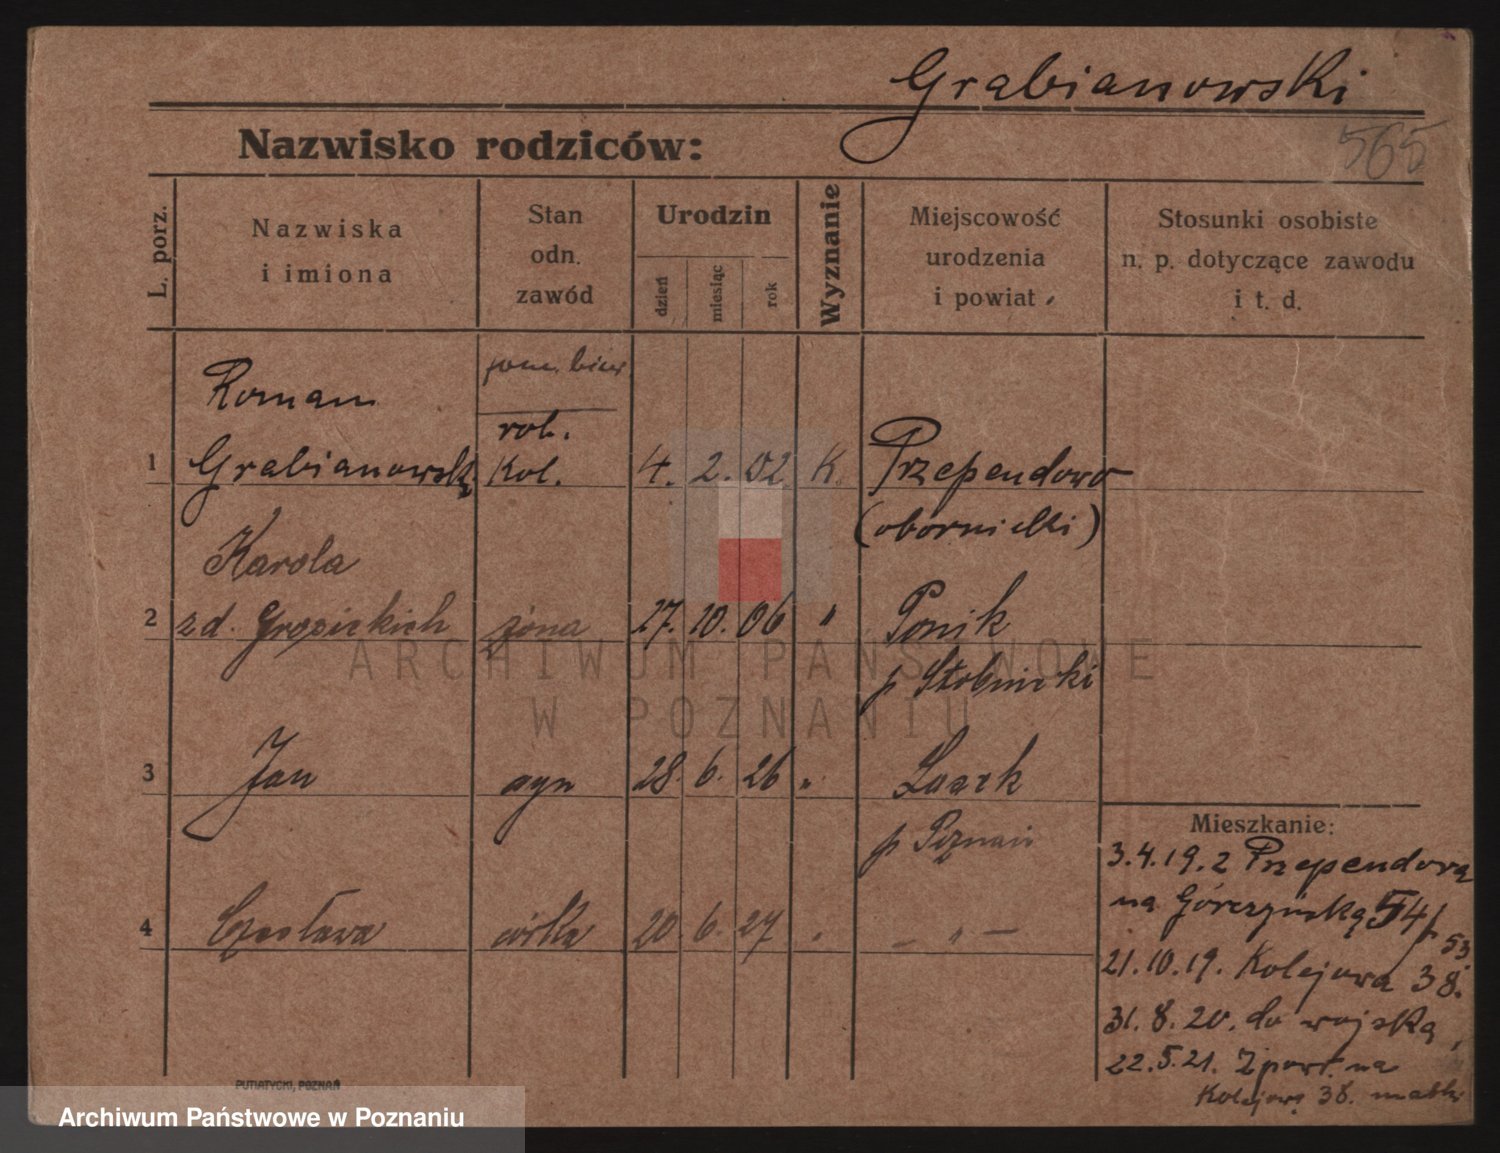 Grabianowski
565
Nazwisko rodziców:
L. porz.
Nazwiska
i imiona
Stan
odn.
zawód
Urodzin
dzień
miesiąc
rok
Wyznanie
Miejscowość
urodzenia
i powiat
Stosunki osobiste
n. p. dotyczące zawodu
i t. d.
pom. biur
Roman
rob.
1 Grabianowski Kol. 4. 2. 02. K. Przependowo
(obornicki)
Karola
2 zd. żona 27. 10. 06 " Ponik
p Stobnicki
3 Jan syn 28. 6. 26 "
p Poznań
4 Czesława córka 20. 6. 27 " - " -
Mieszkanie:
3.4.19. z Przependowa
na Górczyńską 54/
53.
21.10.19. Kolejowa 38.
31.8.20. do wojska,
22.5.21. Z powr. na
Kolejową 38. matki
PUTIATYCKI, POZNAŃ
ARCHIWUM PAŃSTWOWE
W POZNANIU
Archiwum Państwowe w Poznaniu